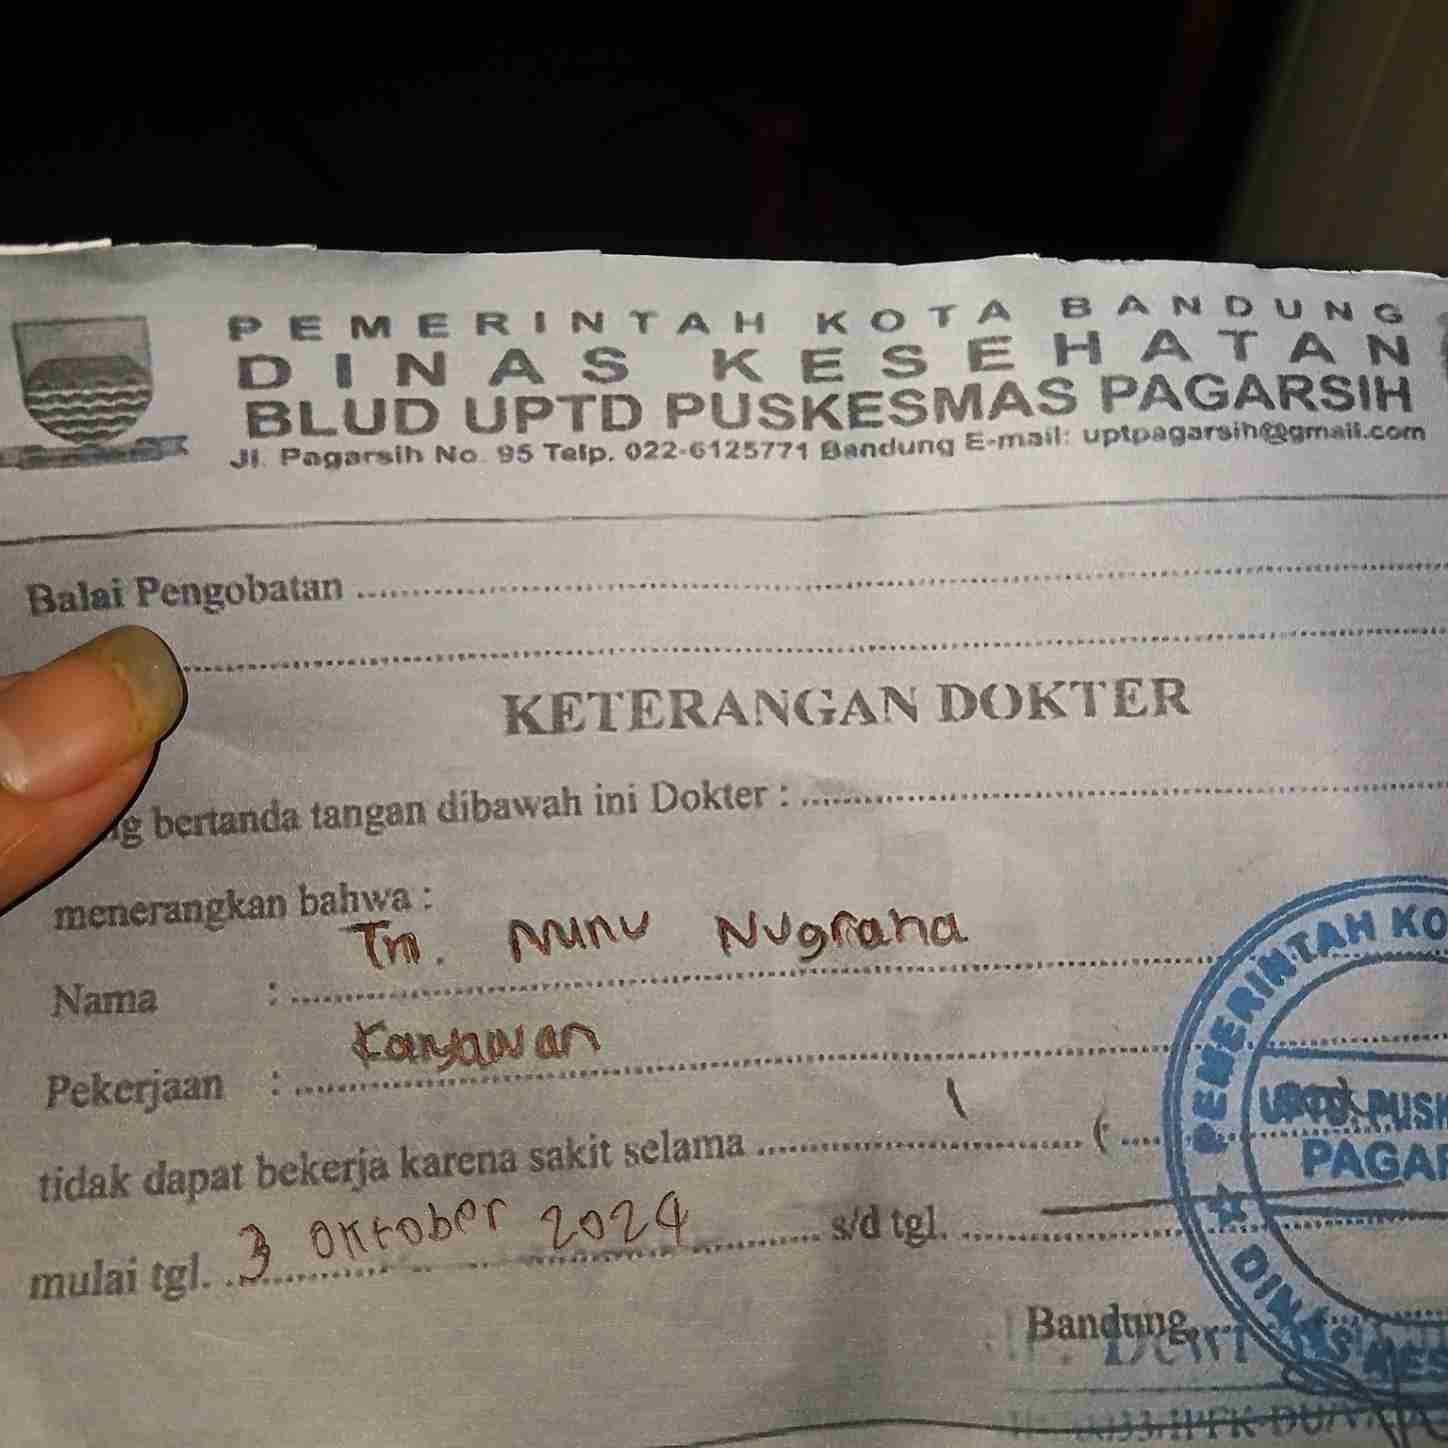 PEMERINTAH KOTA BANDUNG
DINAS KESEHATAN
BLUD UPTD PUSKESMAS PAGARSIH
Jl. Pagarsih No. 95 Telp. 022-6125771 Bandung E-mail: uptpagarsih@gmail.com
Balai Pengobatan
KETERANGAN DOKTER
bertanda tangan dibawah ini Dokter :
menerangkan bahwa :
Nama : Tn. Nunu Nugraha
Pekerjaan : Karyawan
tidak dapat bekerja karena sakit selama 1 (
mulai tgl. 3 Oktober 2024 s/d tgl.
Bandung,
PEMERINTAH KO
UPTD PUSK
PAGAR
DINAS KES